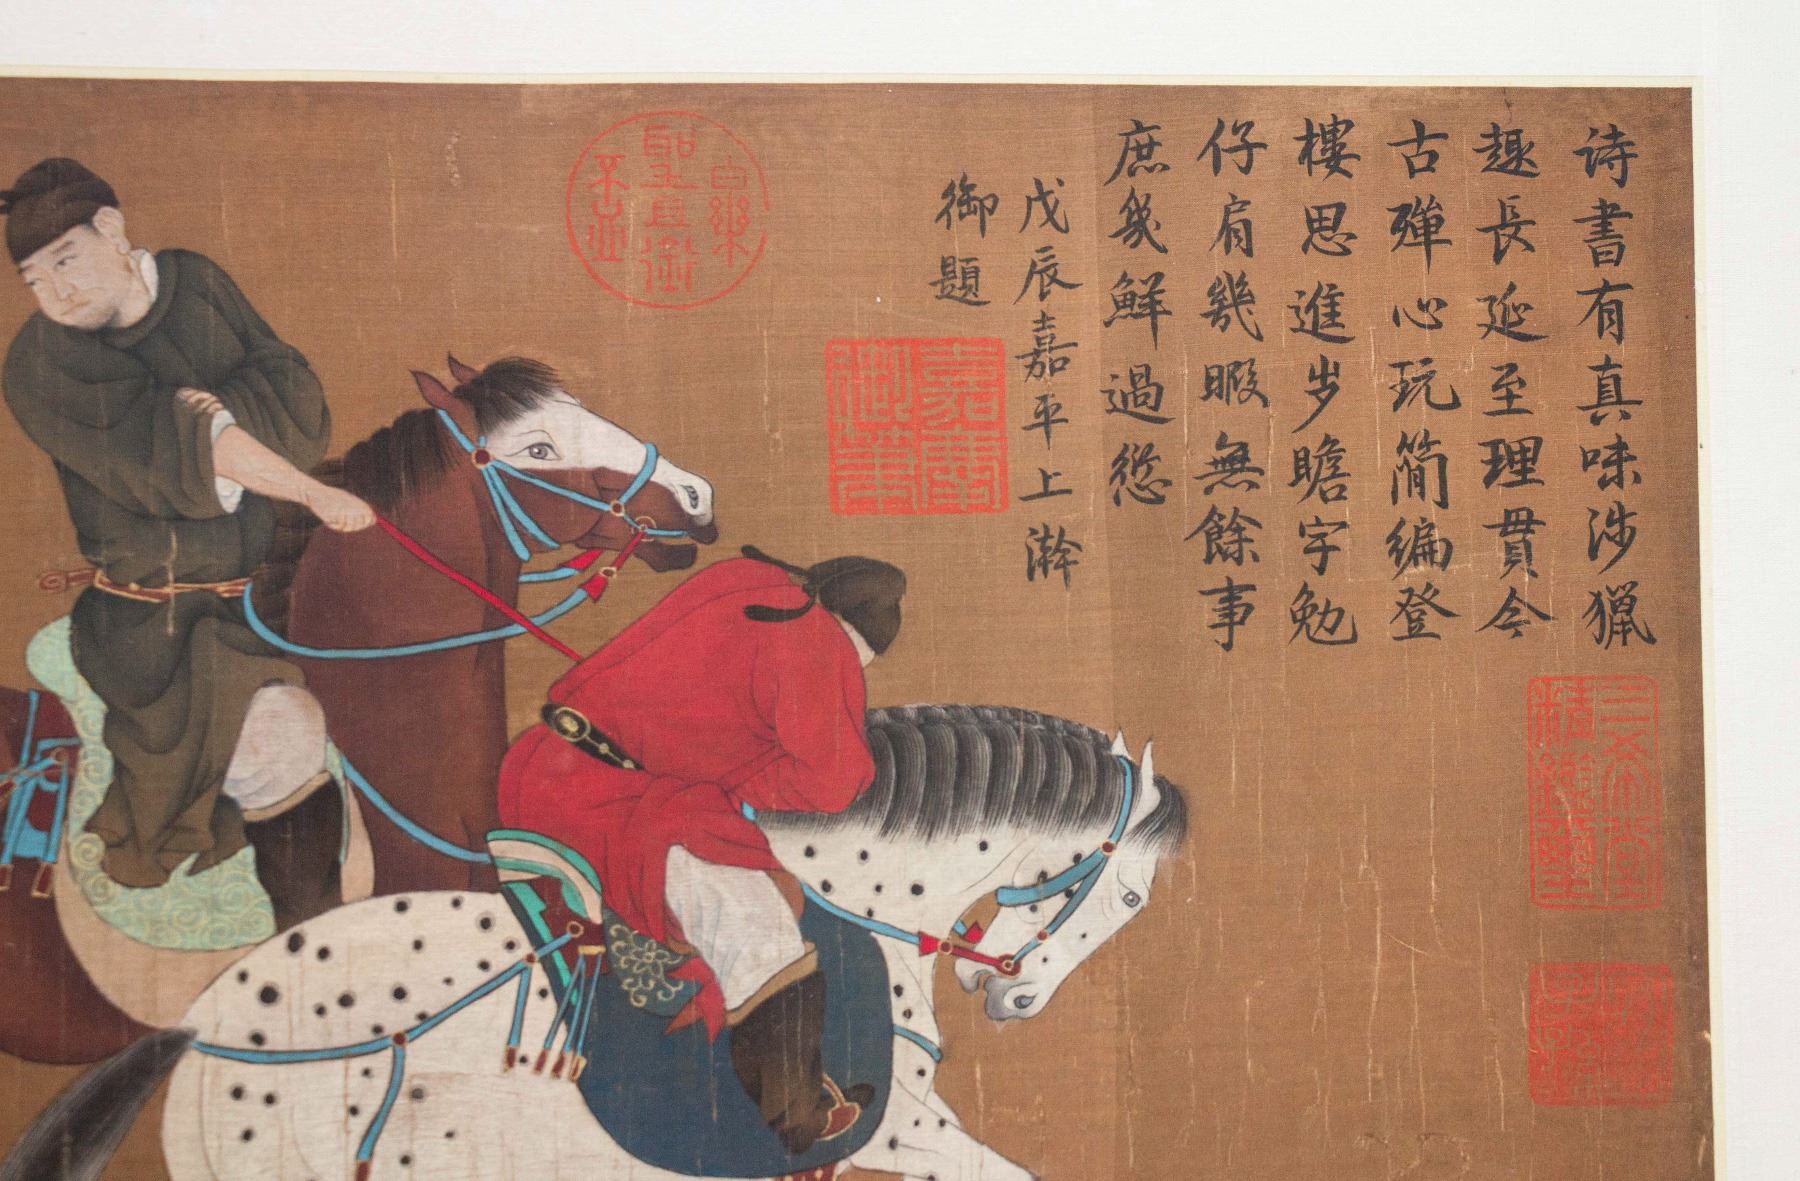 诗書有真味涉獵
趣長延至理貫今
古殫心玩简编登
樓思進步瞻宇勉
仔肩幾暇無餘事
庶幾鮮過愆
戊辰嘉平上澣
御題
嘉慶
御筆
三希堂
精鑑璽
宜子孫